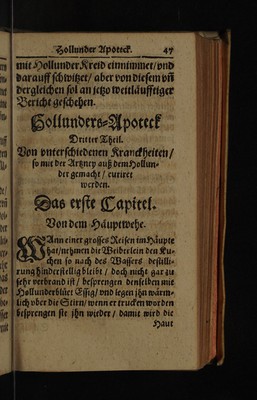 Hollunder Apoteck. 47
mit Hollunder Kreid einnimmet / vnd
darauff schwitzet / aber von diesem vñ
dergleichen sol an jetzo weitläufftiger
Bericht geschehen.
Hollunders-Apoteck
Dritter Theil.
Von vnterschiedenen Kranckheiten /
so mit der Artzney auß dem Hollun-
der gemacht / curiret
werden.
Das erste Capitel.
Von dem Häuptwehe.
WAnn einer grosses Reisen im Häupte
hat / nehmen die Weiber lein den Ku-
chen so nach des Wassers destilli-
rung hinderstellig bleibt / doch nicht gar zu
sehr verbrand ist / besprengen denselben mit
Hollunderblüet Essig / vnd legen jhn wärm-
lich vber die Stirn / wenn er trucken worden
besprengen sie jhn wieder / damit wird die
Haut